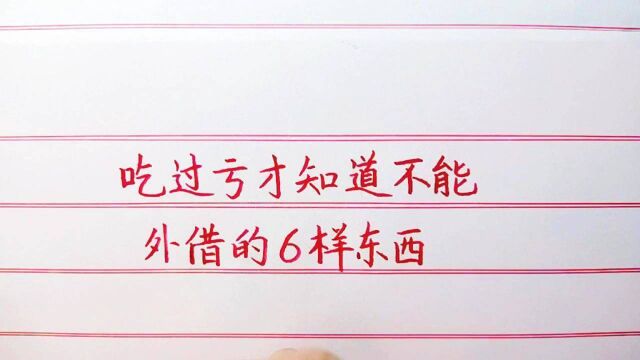 吃过亏才知道不能
外借的6样东西